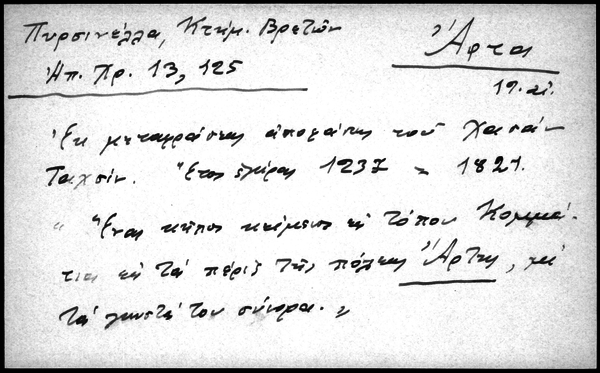 Πυρσινέλλα, Κτημ. Βρετῶν
Ἠπ. Χρ. 13, 125
Ἄρτα
19. αἰ.
Ἐκ μεταφράσεως ἀποφάσεως τοῦ Χασὰν
Ταχσίν. Ἔτος ἐγίρας 1237 = 1821.
" Ἕνας κῆπος κείμενος εἰς τόπον Κομμά-
τια εἰς τὰ πέριξ τῆς πόλεως Ἄρτης, μὲ
τὰ γνωστά του σύνορα. "